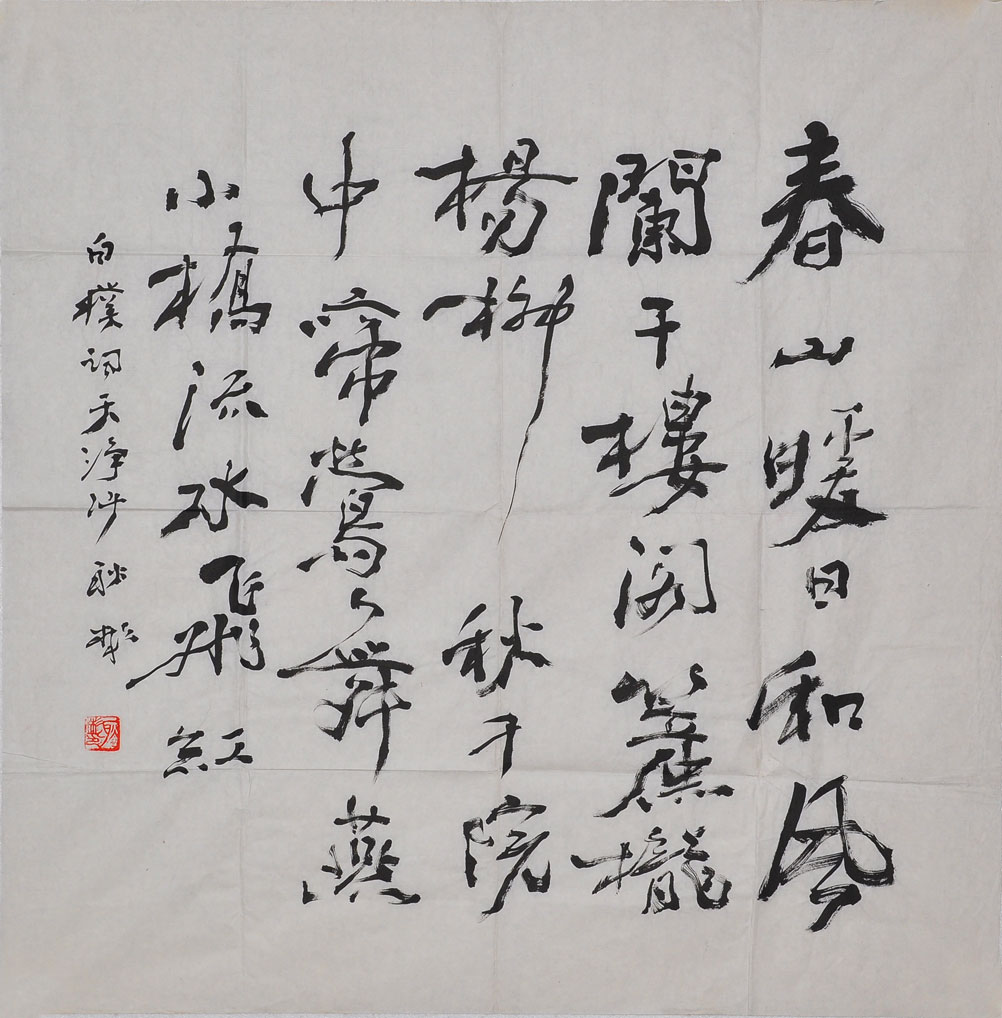 春山暖日和風
闌干樓閣簾櫳
楊柳秋千院
中啼鶯舞燕
小橋流水飛紅
白樸詞天淨沙 耿